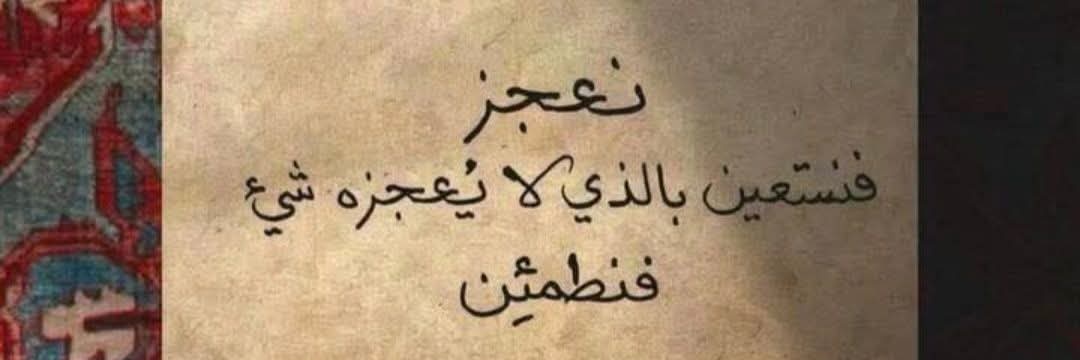 نعجز
فنستعين بالذي لا يُعجزه شيء
فنطمئِن